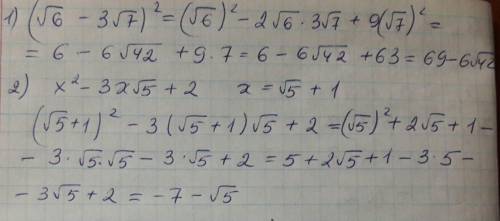 1) (√6 - 3√7)² = (√6)² - 2√6 · 3√7 + 9(√7)² =
= 6 - 6√42 + 9 · 7 = 6 - 6√42 + 63 = 69 - 6√42
2) x² - 3x√5 + 2 x = √5 + 1
(√5+1)² - 3(√5+1)√5 + 2 = (√5)² + 2√5 + 1 -
- 3·√5·√5 - 3·√5 + 2 = 5 + 2√5 + 1 - 3·5 -
- 3√5 + 2 = -7 - √5